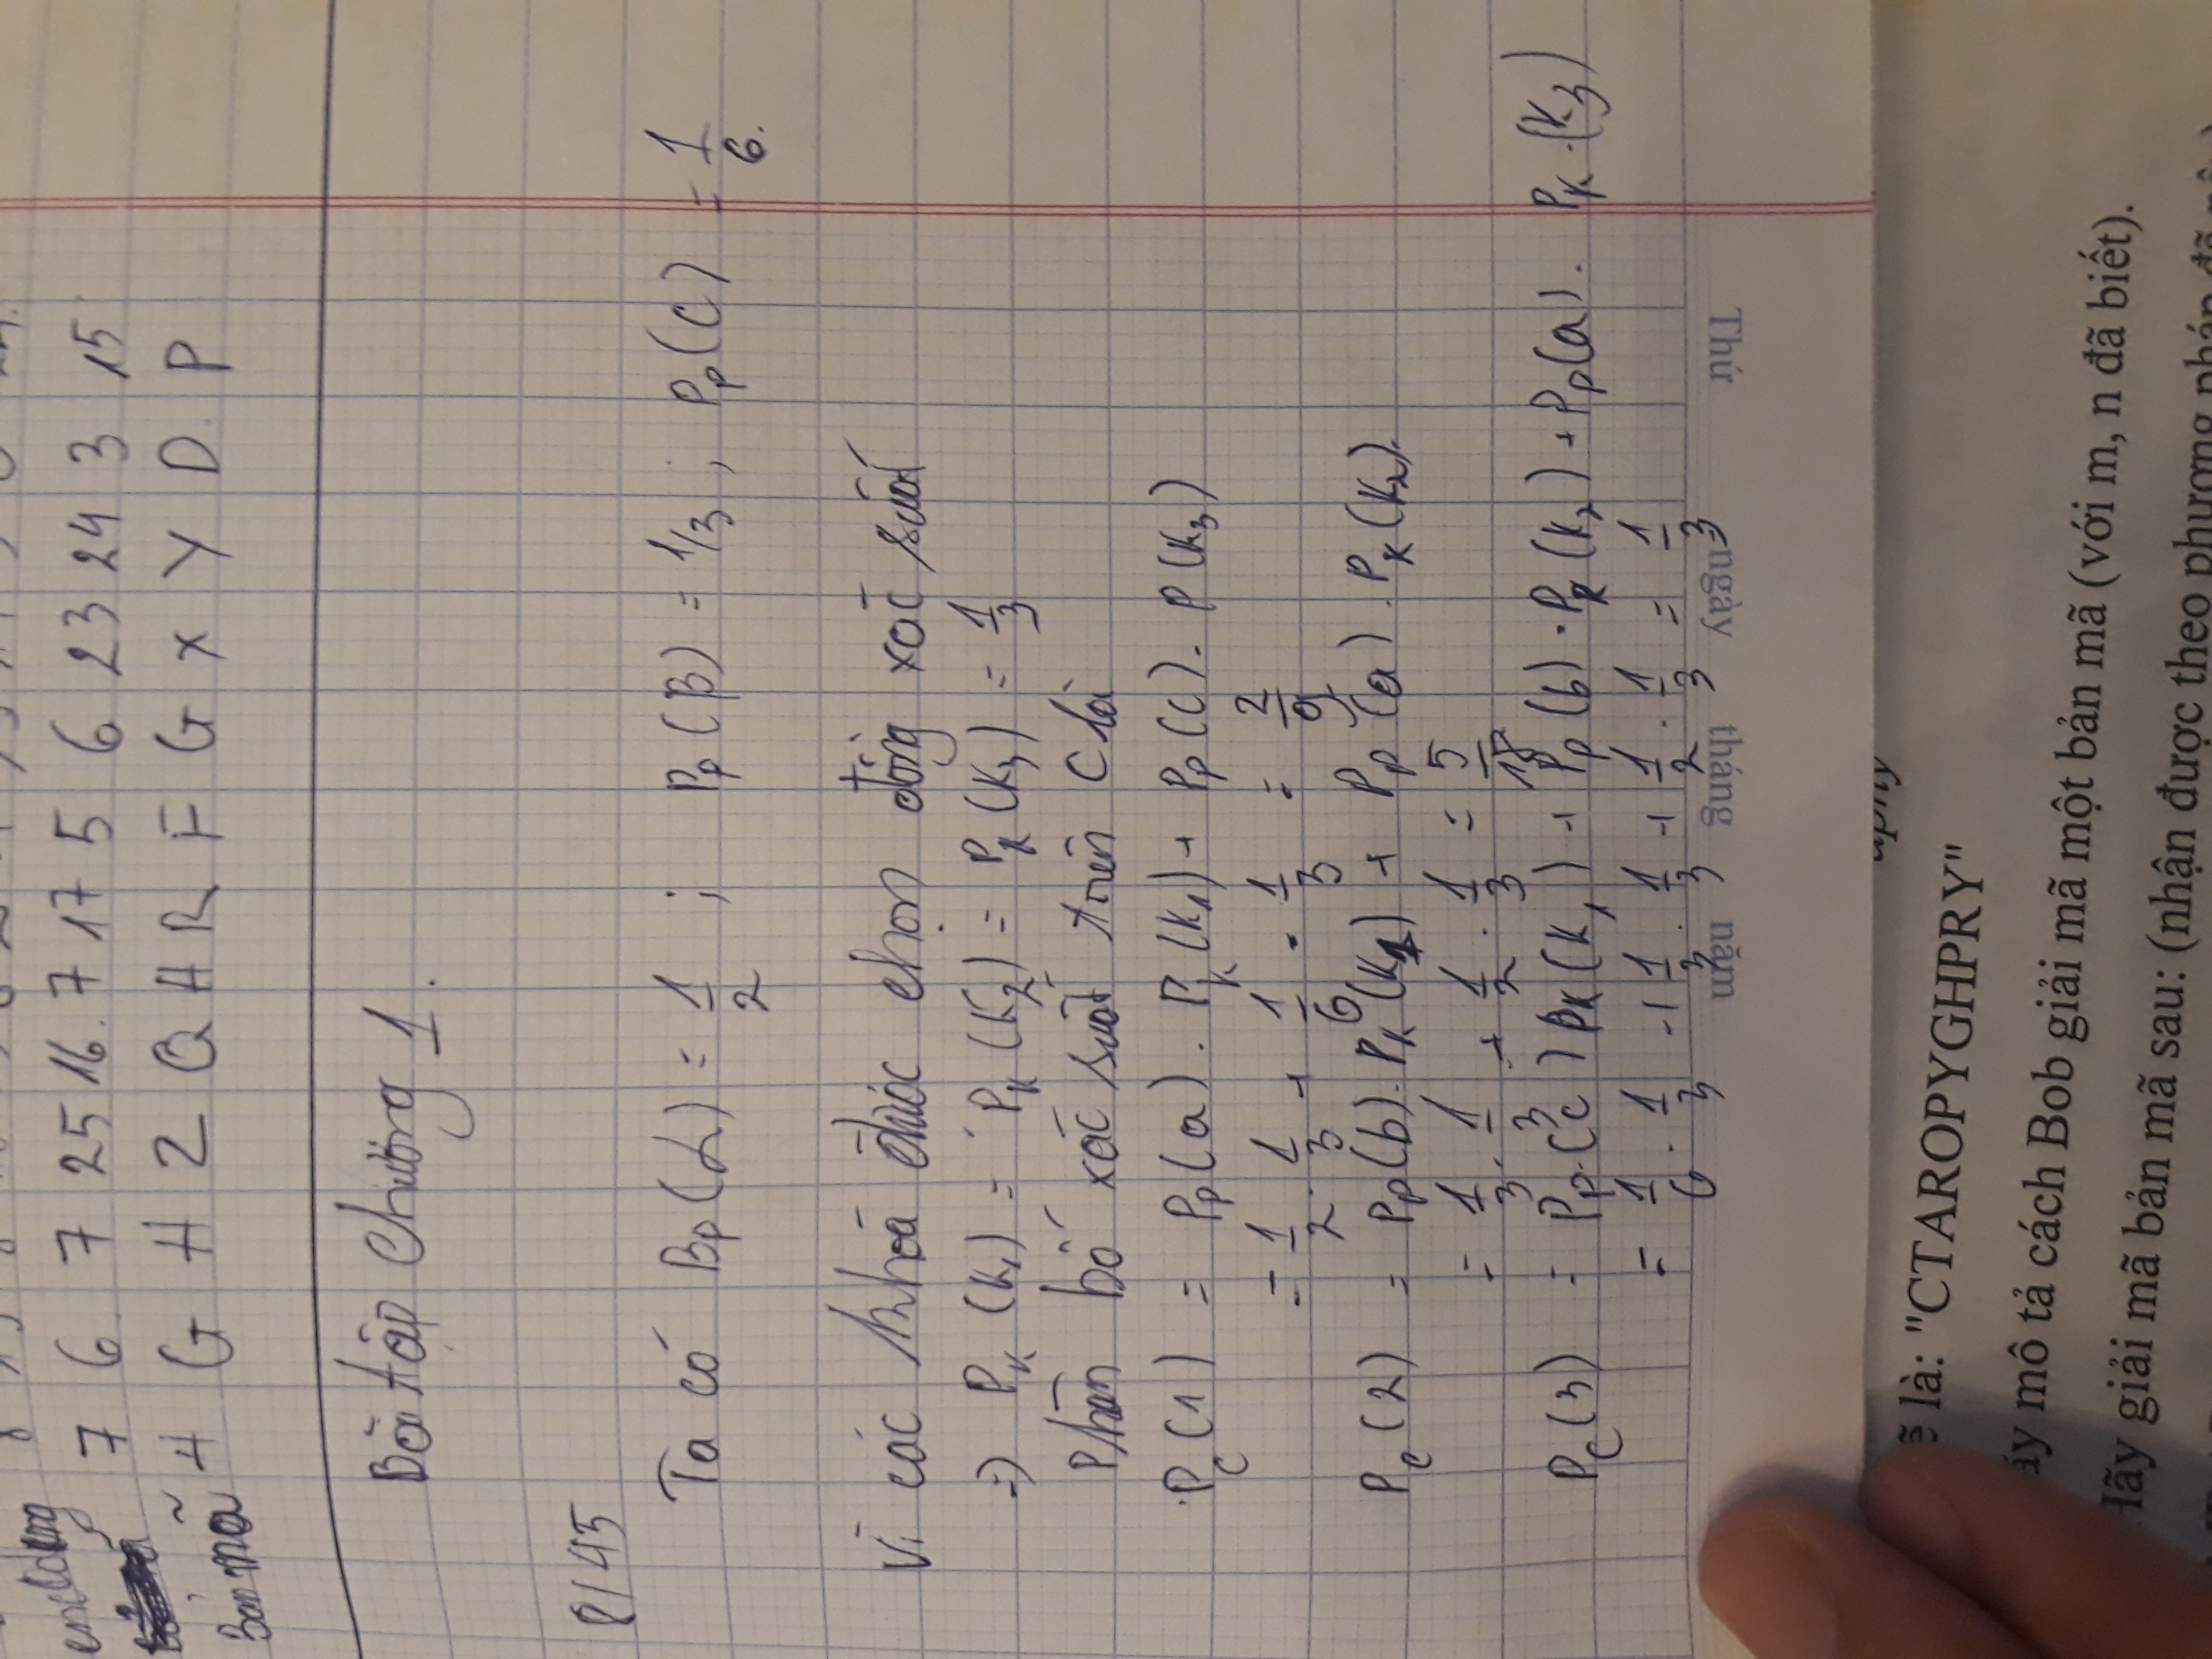 encoding 7 6 7 25 16 7 17 5 6 23 24 3 15
Bản mã H G H Z Q H R F G X Y D P
Bài tập chương 1.
8/45
Ta có Bp(α) = 1/2 ; Pp(β) = 1/3 ; Pp(C) = 1/6.
Vì các khoá được chọn đồng xác suất
=> PK(K1) = PK(K2) = PK(K3) = 1/3
Phân bố xác suất trên C là
PC(1) = Pp(a) . PK(K1) + Pp(C) . P(K3)
= 1/2 . 1/3 + 1/6 . 1/3 = 2/9
PC(2) = Pp(b) . PK(K1) + Pp(a) . PK(K2).
= 1/3 . 1/3 + 1/2 . 1/3 = 5/18
PC(3) = Pp.(c) PK(K1) + Pp(b) . PK(K2) + Pp(a) . PK.(K3)
= 1/6 . 1/3 + 1/3 . 1/3 + 1/2 . 1/3 = 1/3
Thứ ngày tháng năm
là: "CTAROPYGHPRY"
mô tả cách Bob giải mã một bản mã (với m, n đã biết).
Hãy giải mã bản mã sau: (nhận được theo phương pháp đã